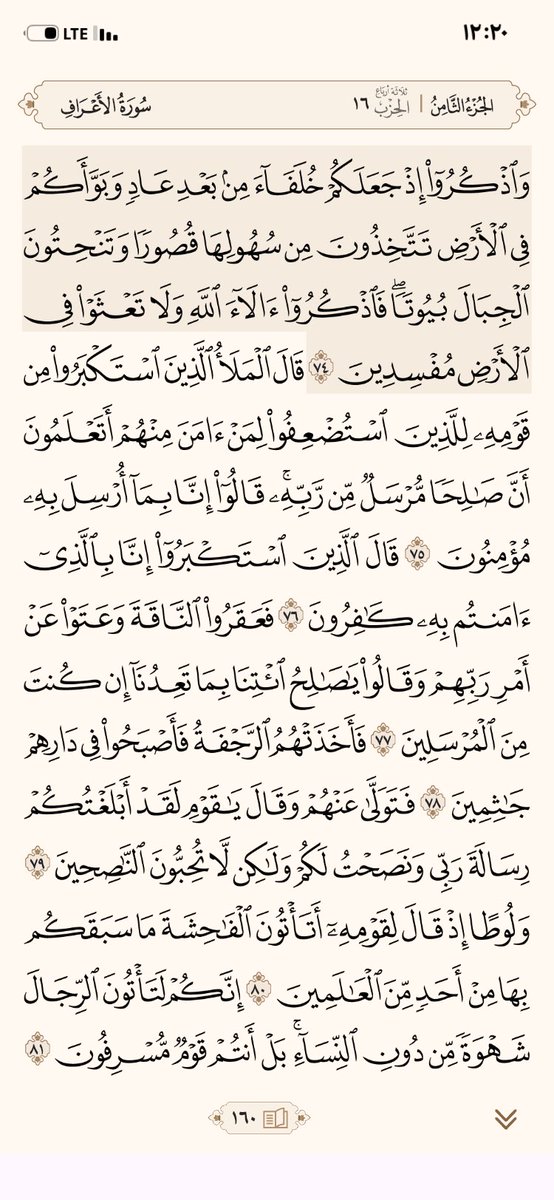 LTE ١٢:٢٠
الجُزْءُ الثَّامِنُ | ثلاثة أرباع الحِزْبِ ١٦ سُورَةُ الأَعْرَافِ
وَٱذْكُرُوٓا۟ إِذْ جَعَلَكُمْ خُلَفَآءَ مِنۢ بَعْدِ عَادٍ وَبَوَّأَكُمْ
فِى ٱلْأَرْضِ تَتَّخِذُونَ مِن سُهُولِهَا قُصُورًا وَتَنْحِتُونَ
ٱلْجِبَالَ بُيُوتًا ۖ فَٱذْكُرُوٓا۟ ءَالَآءَ ٱللَّهِ وَلَا تَعْثَوْا۟ فِى
ٱلْأَرْضِ مُفْسِدِينَ ٧٤ قَالَ ٱلْمَلَأُ ٱلَّذِينَ ٱسْتَكْبَرُوا۟ مِن
قَوْمِهِۦ لِلَّذِينَ ٱسْتُضْعِفُوا۟ لِمَنْ ءَامَنَ مِنْهُمْ أَتَعْلَمُونَ
أَنَّ صَـٰلِحًا مُّرْسَلٌ مِّن رَّبِّهِۦ ۚ قَالُوٓا۟ إِنَّا بِمَآ أُرْسِلَ بِهِۦ
مُؤْمِنُونَ ٧٥ قَالَ ٱلَّذِينَ ٱسْتَكْبَرُوٓا۟ إِنَّا بِٱلَّذِىٓ
ءَامَنتُم بِهِۦ كَـٰفِرُونَ ٧٦ فَعَقَرُوا۟ ٱلنَّاقَةَ وَعَتَوْا۟ عَنْ
أَمْرِ رَبِّهِمْ وَقَالُوا۟ يَـٰصَـٰلِحُ ٱئْتِنَا بِمَا تَعِدُنَآ إِن كُنتَ
مِنَ ٱلْمُرْسَلِينَ ٧٧ فَأَخَذَتْهُمُ ٱلرَّجْفَةُ فَأَصْبَحُوا۟ فِى دَارِهِمْ
جَـٰثِمِينَ ٧٨ فَتَوَلَّىٰ عَنْهُمْ وَقَالَ يَـٰقَوْمِ لَقَدْ أَبْلَغْتُكُمْ
رِسَالَةَ رَبِّى وَنَصَحْتُ لَكُمْ وَلَـٰكِن لَّا تُحِبُّونَ ٱلنَّـٰصِحِينَ ٧٩
وَلُوطًا إِذْ قَالَ لِقَوْمِهِۦٓ أَتَأْتُونَ ٱلْفَـٰحِشَةَ مَا سَبَقَكُم
بِهَا مِنْ أَحَدٍ مِّنَ ٱلْعَـٰلَمِينَ ٨٠ إِنَّكُمْ لَتَأْتُونَ ٱلرِّجَالَ
شَهْوَةً مِّن دُونِ ٱلنِّسَآءِ ۚ بَلْ أَنتُمْ قَوْمٌ مُّسْرِفُونَ ٨١
١٦٠